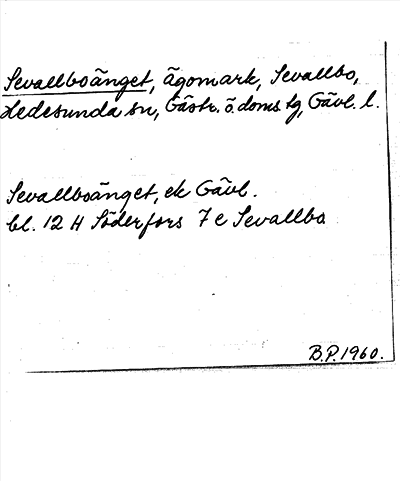 Sevallboänget, ägomark, Sevallbo,
Hedesunda sn, Gästr. ö. doms tg, Gävl. l.
Sevallboänget, ek Gävl.
bl. 12 H Söderfors 7 e Sevallbo
B.P. 1960.